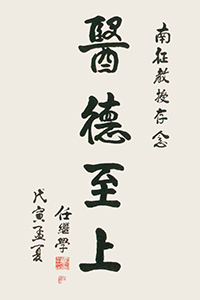 南征教授存念
醫德至上
任繼學
戊寅孟夏